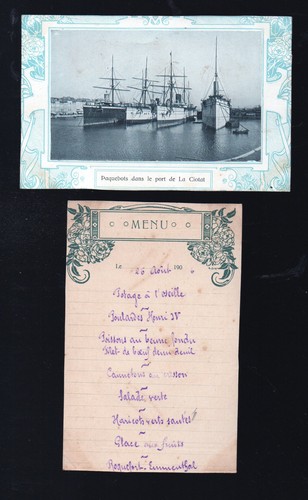 Paquebots dans le port de La Ciotat
MENU
Le 26 Août 190
Potage à l'oseille
Poulardes Henri IV
Poissons au beurre fondu
Filet de bœuf demi deuil
Cannetons au cresson
Salade verte
Haricots verts sautés
Glace aux fruits
Roquefort - Emmenthal